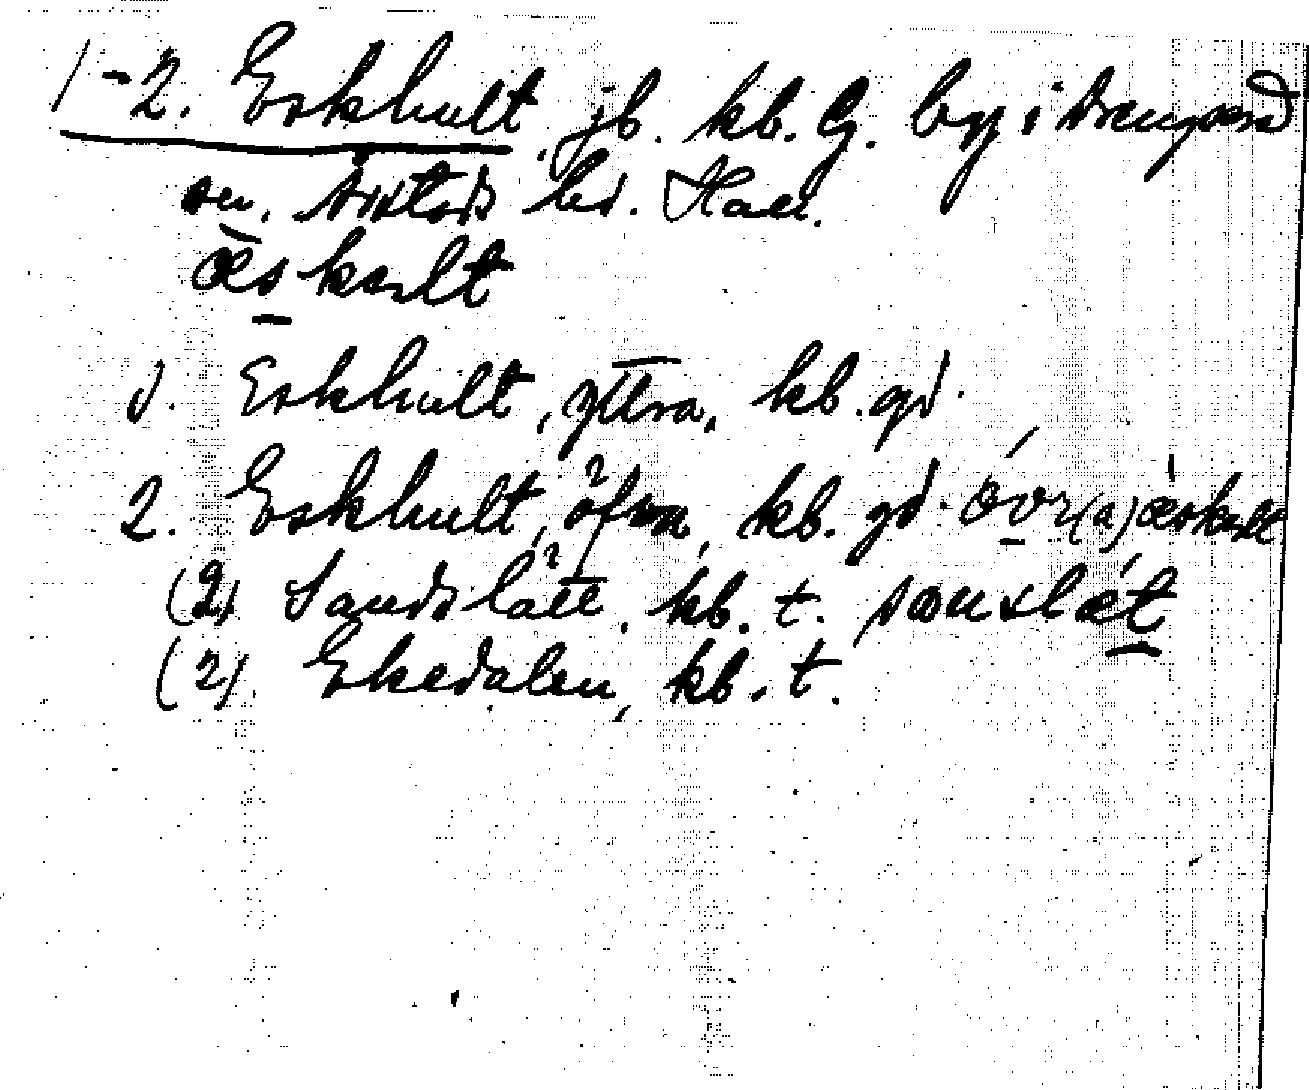 1-2. Eskhult, jb. kb. G. by i Drengsered
sn. Årstads hd. Hall.
æskult
1. Eskhult, yttra, kb. gd.
2. Eskhult, öfra, kb. gd. övr(a) æskult
(2) Sandslätt, kb. t. sanslét
(2) Ekedalen, kb. t.